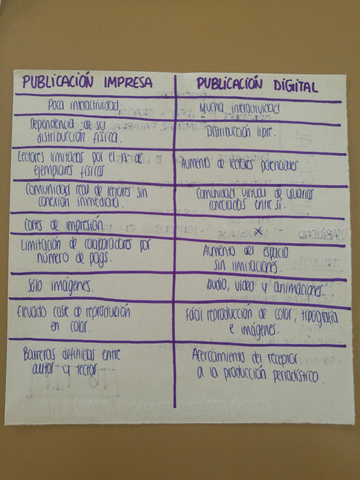 PUBLICACIÓN IMPRESA
PUBLICACIÓN DIGITAL
Poca interactividad.
Mucha interactividad
Dependencia de su
distribución física.
Distribución libre.
Lectores limitados por el nº de
ejemplares físicos
Aumento de lectores potenciales
Comunidad real de lectores sin
conexión inmediata.
Comunidad virtual de usuarios
conectados entre sí.
Costes de impresión.
x
Limitación de colaboradores por
número de págs.
Aumento del espacio
sin limitaciones.
Sólo imágenes.
Audio, video y animaciones.
Elevado coste de reproducción
en color.
Fácil reproducción de color, tipografía
e imágenes.
Barreras definidas entre
autor y lector
Acercamiento del receptor
a la producción periodística.